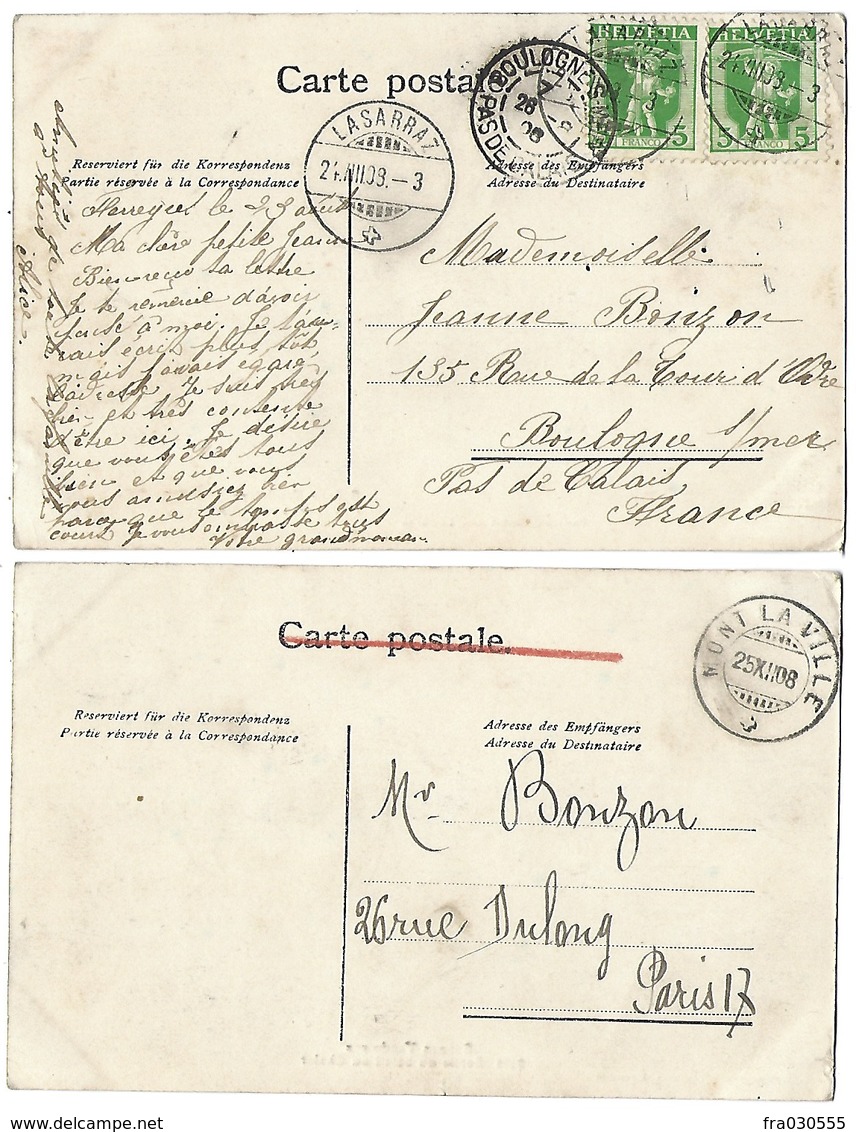 Carte postale.
HELVETIA
HELVETIA
5
FRANCO
5
5
FRANCO
BOULOGNE
PAS DE
26
08
LASARRAZ
24.VIII08.–3
Reserviert für die Korrespondenz
Partie réservée à la Correspondance
Adresse des Empfängers
Adresse du Destinataire
Ferreyres le 23 août
Ma chère petite Jeanne
Bien reçu ta lettre
Je te remercie d'avoir
pensé à moi. Je t'au-
rais écri plus tôt
mais j'avais égaré
l'adresse. Je suis très
bien et très contente
d'être ici. Je désire
que vous êtes tous
bien et que vous
vous amusiez bien
parce que le temps est
court Je vous embrasse tous
Votre grandmaman
Alice.
Mademoiselle
Jeanne Bonzon
135 Rue de la Tour d'Odre
Boulogne s/mer
Pas de Calais
France
Carte postale.
MONT LA VILLE
25XII08
Reserviert für die Korrespondenz
Partie réservée à la Correspondance
Adresse des Empfängers
Adresse du Destinataire
Mr. Bonzon
26 rue Dulong
Paris 17
fra030555